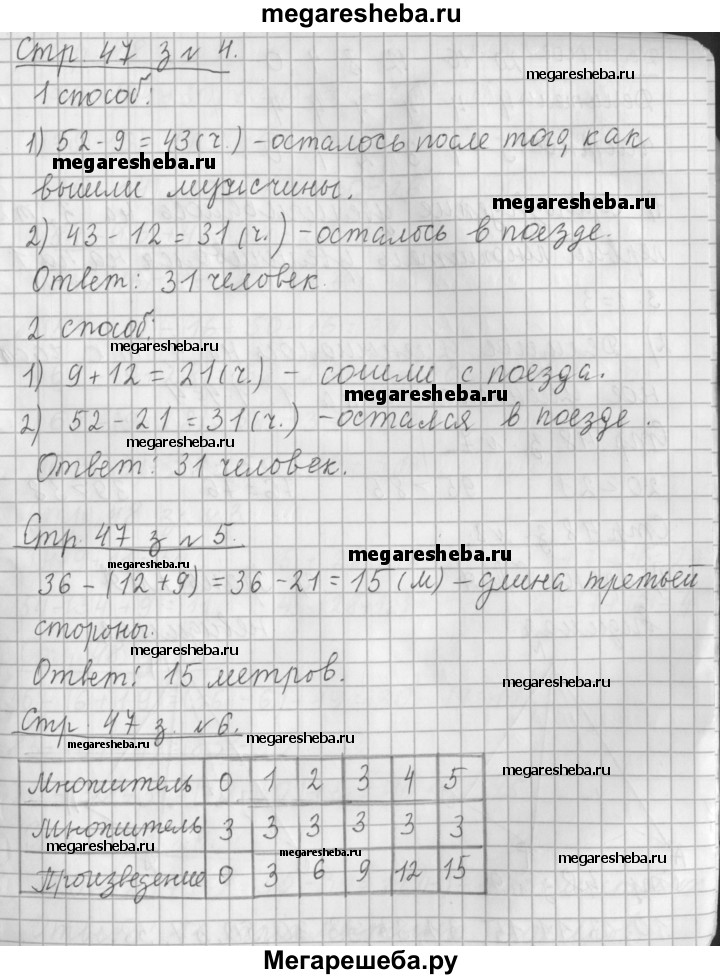 megaresheba.ru
Стр. 47 з № 4.
megaresheba.ru
1 способ:
1) 52 - 9 = 43 (ч.) - осталось после того, как
megaresheba.ru
вышли мужчины.
megaresheba.ru
2) 43 - 12 = 31 (ч.) - осталось в поезде.
Ответ: 31 человек.
2 способ:
megaresheba.ru
1) 9 + 12 = 21 (ч.) - сошли с поезда.
megaresheba.ru
2) 52 - 21 = 31 (ч.) - остался в поезде.
megaresheba.ru
Ответ: 31 человек.
Стр. 47 з № 5.
megaresheba.ru
megaresheba.ru
36 - (12 + 9) = 36 - 21 = 15 (м) - длина третьей
стороны.
megaresheba.ru
Ответ: 15 метров.
megaresheba.ru
Стр. 47 з. № 6.
megaresheba.ru
megaresheba.ru
Множитель 0 1 2 3 4 5
megaresheba.ru
Множитель 3 3 3 3 3 3
megaresheba.ru
megaresheba.ru
megaresheba.ru
Произведение 0 3 6 9 12 15
Мегарешеба.ру